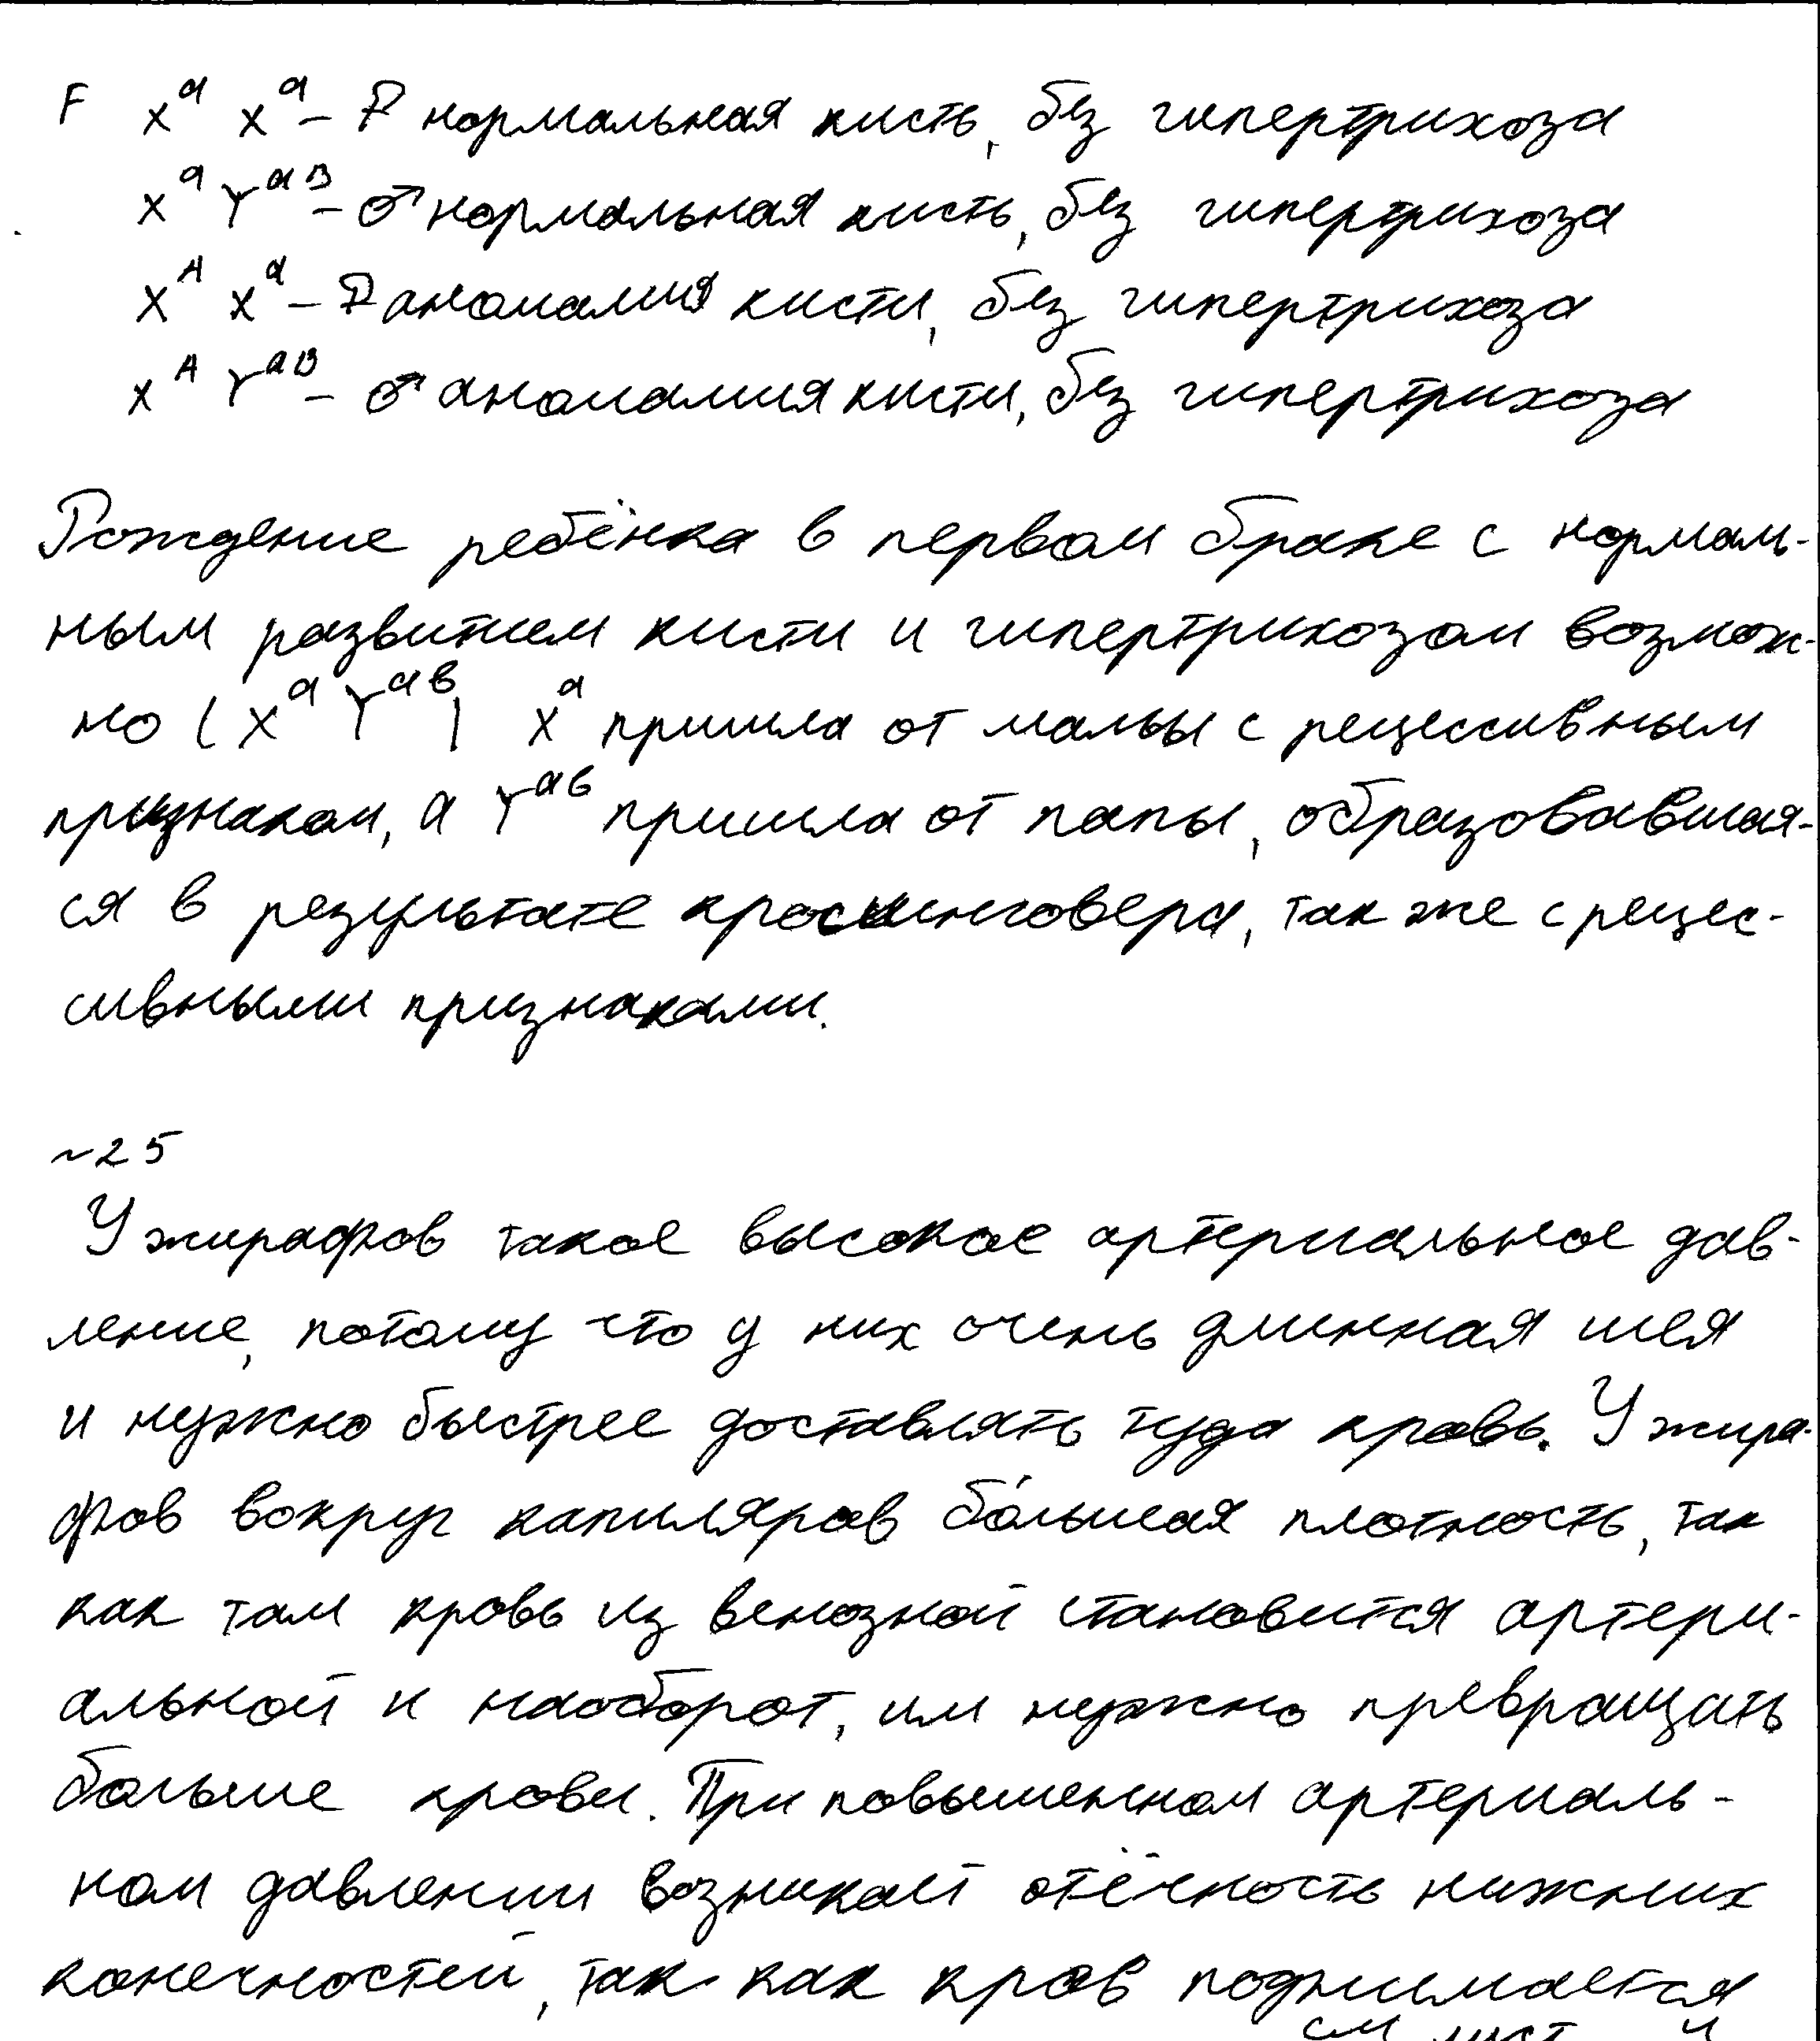 F X^a X^a – ♀ нормальная кисть, без гипертрихоза
X^a Y^aB – ♂ нормальная кисть, без гипертрихоза
X^A X^a – ♀ аномалия кисти, без гипертрихоза
X^A Y^aB – ♂ аномалия кисти, без гипертрихоза
Рождение ребёнка в первом браке с нормаль-
ным развитием кисти и гипертрихозом возмож-
но ( X^a Y^aв ) X^a пришла от мамы с рецессивным
признаком, а Y^aв пришла от папы, образовавшая-
ся в результате кроссинговера, так же с рецес-
сивными признаками.
~25
У жирафов такое высокое артериальное дав-
ление, потому что у них очень длинная шея
и нужно быстрее доставлять туда кровь. У жира-
фов вокруг капиляров бо́льшая плотность, так
как там кровь из венозной становится артери-
альной и наоборот, им нужно превращать
больше крови. При повышенном артериаль-
ном давлении возникает отёчность нижних
конечностей, так как кров поднимается
см лист